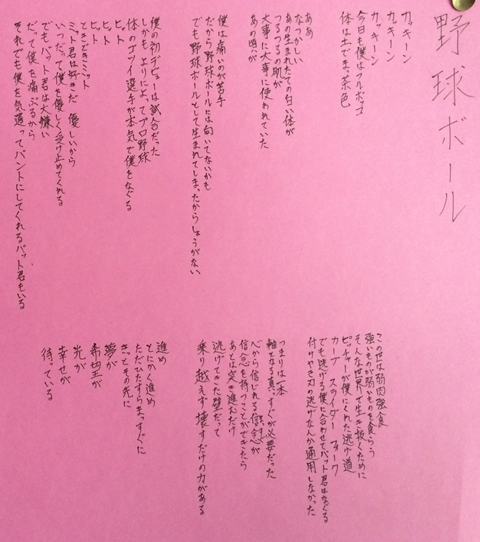 野球ボール
カッキーン
カッキーン
カッキーン
今日も僕はフルボッコ
体は土でき茶色
ああ
なつかしい
あの生まれたての白い体が
つるつるの肌が
大事に大事に使われていた
あの頃が
僕は痛いのが苦手
だから野球ボールには向いてないかも
でも野球ボールとして生まれてしまったからしょうがない
僕の初デビューは試合だった
しかも よりによってプロ野球
体のゴツイ選手が本気で僕をなぐる
ヒット
ヒット
ヒット
ときどきミット
ミット君は好きだ 優しいから
いつだって僕を優しく受け止めてくれる
でもバット君は大嫌い
だって僕を痛ぶるから
それでも僕を気遣ってバントにしてくれるバット君もいる
この世は弱肉強食
強いものが弱いものを食らう
そんな世界で生き抜くために
ピッチャーが僕にくれた逃げ道
カーブ スライダー フォーク
でも逃げる僕に合わせてバット君はなぐる
付けやき刃の逃げなんか通用しなかった
つまりは一本
軸となる真っすぐが必要だった
心から信じれる
信念を持つことができたら
あとは突き進んだけ
逃げてきた壁だって
乗り越えず壊すだけの力がある
進め
とにかく進め
ただひたすらまっすぐに
きっとその先に
夢が
希望が
光が
幸せが
待っている